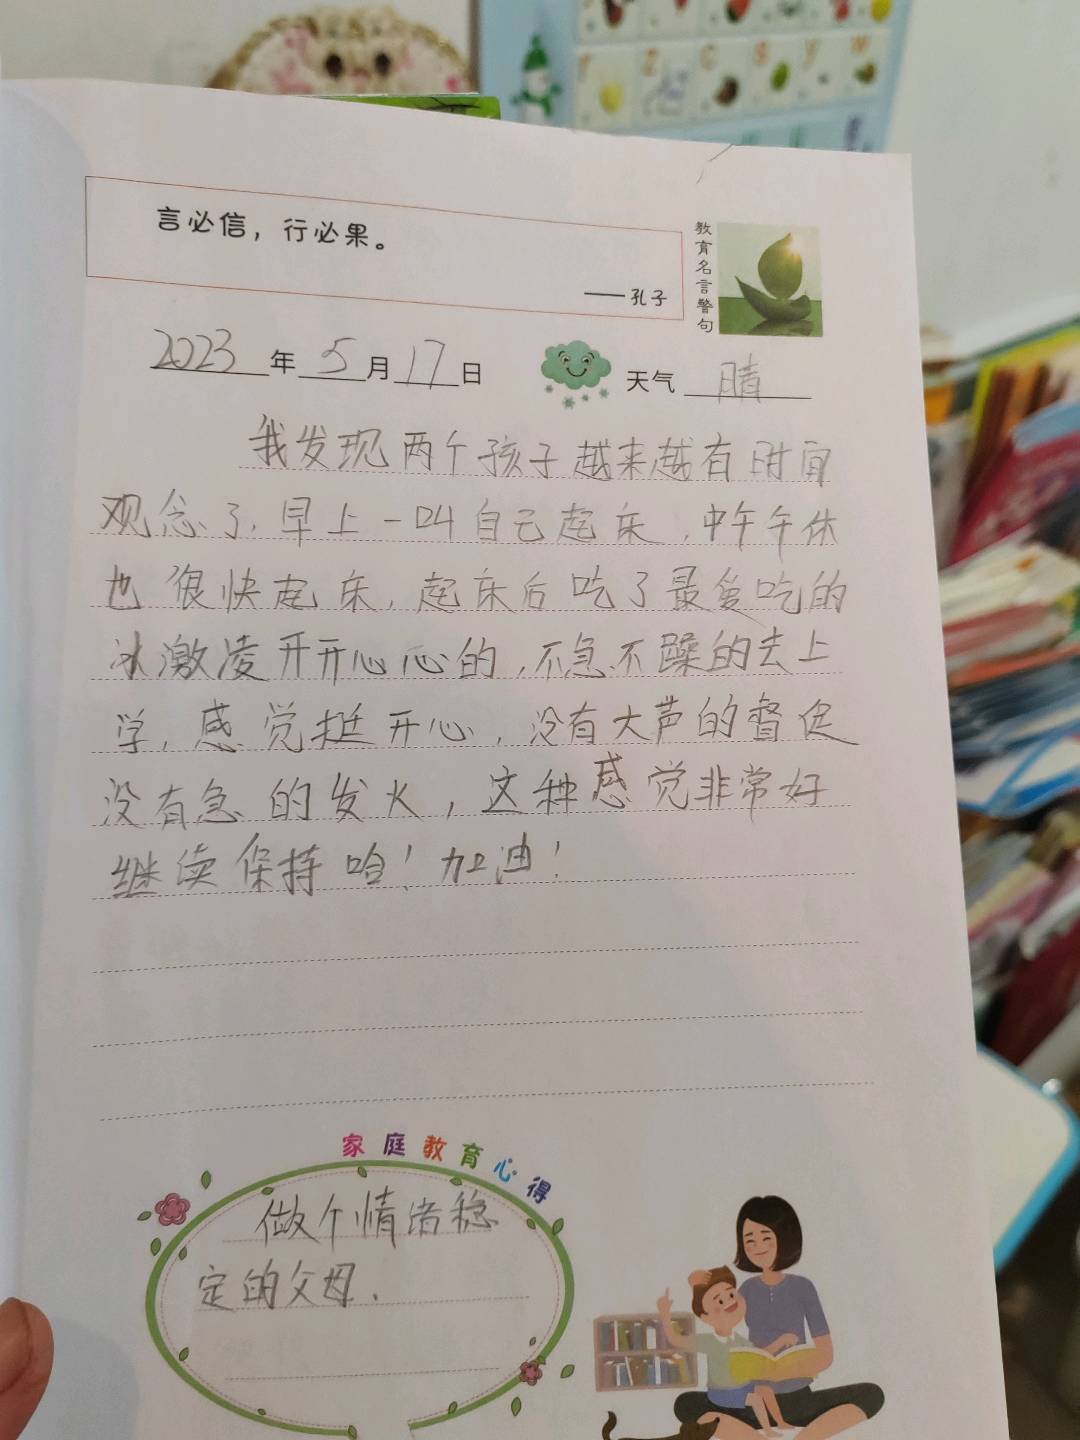 言必信，行必果。
——孔子
教育名言警句
2023年5月17日 天气 晴
我发现两个孩子越来越有时间
观念了，早上一叫自己起床，中午午休
也很快起床，起床后吃了最爱吃的
冰激凌开开心心的，不急不躁的去上
学，感觉挺开心，没有大声的督促
没有急的发火，这种感觉非常好
继续保持哈！加油！
家庭教育心得
做个情绪稳
定的父母.